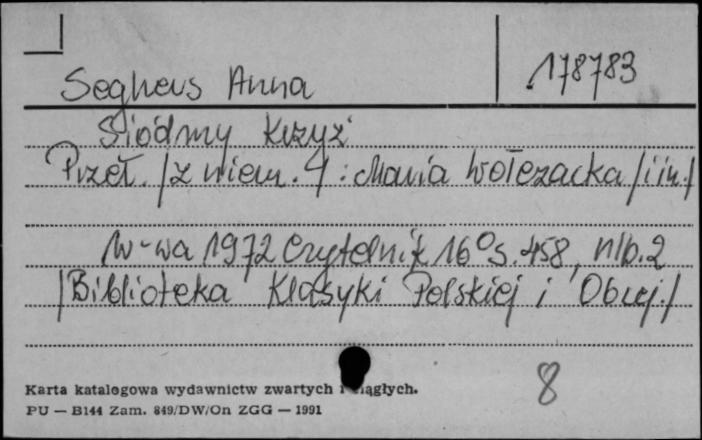 Seghers Anna 178783
Siódmy Krzyż
Przeł. /z niem. / : Maria Wołczacka /i in./
W-wa 1972 Czytelnik 16° s. 458, nlb. 2
/Biblioteka Klasyki Polskiej i Obcej./
Karta katalogowa wydawnictw zwartych i ciągłych.
PU — B144 Zam. 849/DW/On ZGG — 1991
8